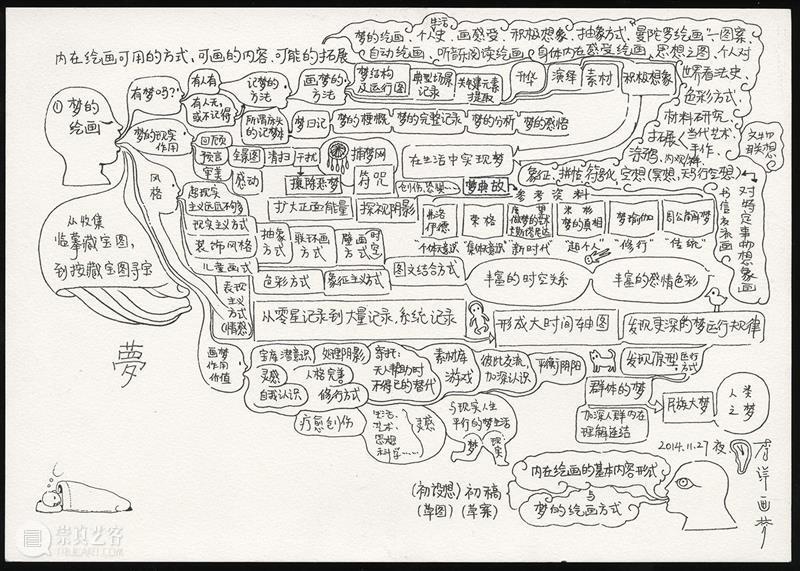 内在绘画可用的方式,可画的内容,可能的拓展
梦的绘画、个人史、生活画感受、积极想象、抽象方式、曼陀罗绘画、图案、
自动绘画、听音阅读绘画、身体内在感受绘画、思想之图、个人对
世界看法史、
色彩方式、
材料研究、
拓展 当代艺术、手作、
涂鸦、
①梦的绘画
有梦吗?
有人有
有人无,或不记得
记梦的方法
画梦的方法
梦结构及运行图
典型场景记录
关键元素提取
升华
演绎
素材
积极想象
梦日记
梦的梗概
梦的完整记录
梦的分析
梦的感悟
梦的现实作用
回厄员
预言
全景图
清扫
干扰
捕梦网
符咒
感动
扫除恶梦
在生活中实现梦
扩大正面能量
探视阴影
梦典故
参考资料
弗洛伊德
荣格
梦的真相
梦瑜伽
周公解梦
"个体无意识"
"集体无意识"
"新时代"
"超个人"
"修行"
"传统"
风格
超现实主义
现实主义方式
装饰风格
儿童画式
表现主义方式(情感)
抽象方式
联环画方式
壁画方式
时空
色彩方式
象征主义方式
图文结合方式
丰富的时空关系
丰富的感情色彩
从收集
临摹藏宝图,
到按藏宝图寻宝
从零星记录到大量记录,系统记录
形成大时间轴图
发现更深的梦运行规律
画梦作用价值
宝库潜意识
处理阴影
寄托:无人帮助时不得已的替代
素材库
游戏
彼此交流,加深认识
平衡阴阳
发现原型运行方式
灵感
人格完善
自我认识
修行方式
疗愈创伤
生活、艺术、思想、科学……
灵感
与现实人生平行的梦生活
梦
现实
群体的梦
加深人群内在理解连结
民族大梦
人类之梦
夢
2014.11.27夜
李洋画梦
内在绘画的基本内容形式
与
梦的绘画方式
(初设想) 初稿
(草图)(草案)
崇真艺客
TRUEART.COM